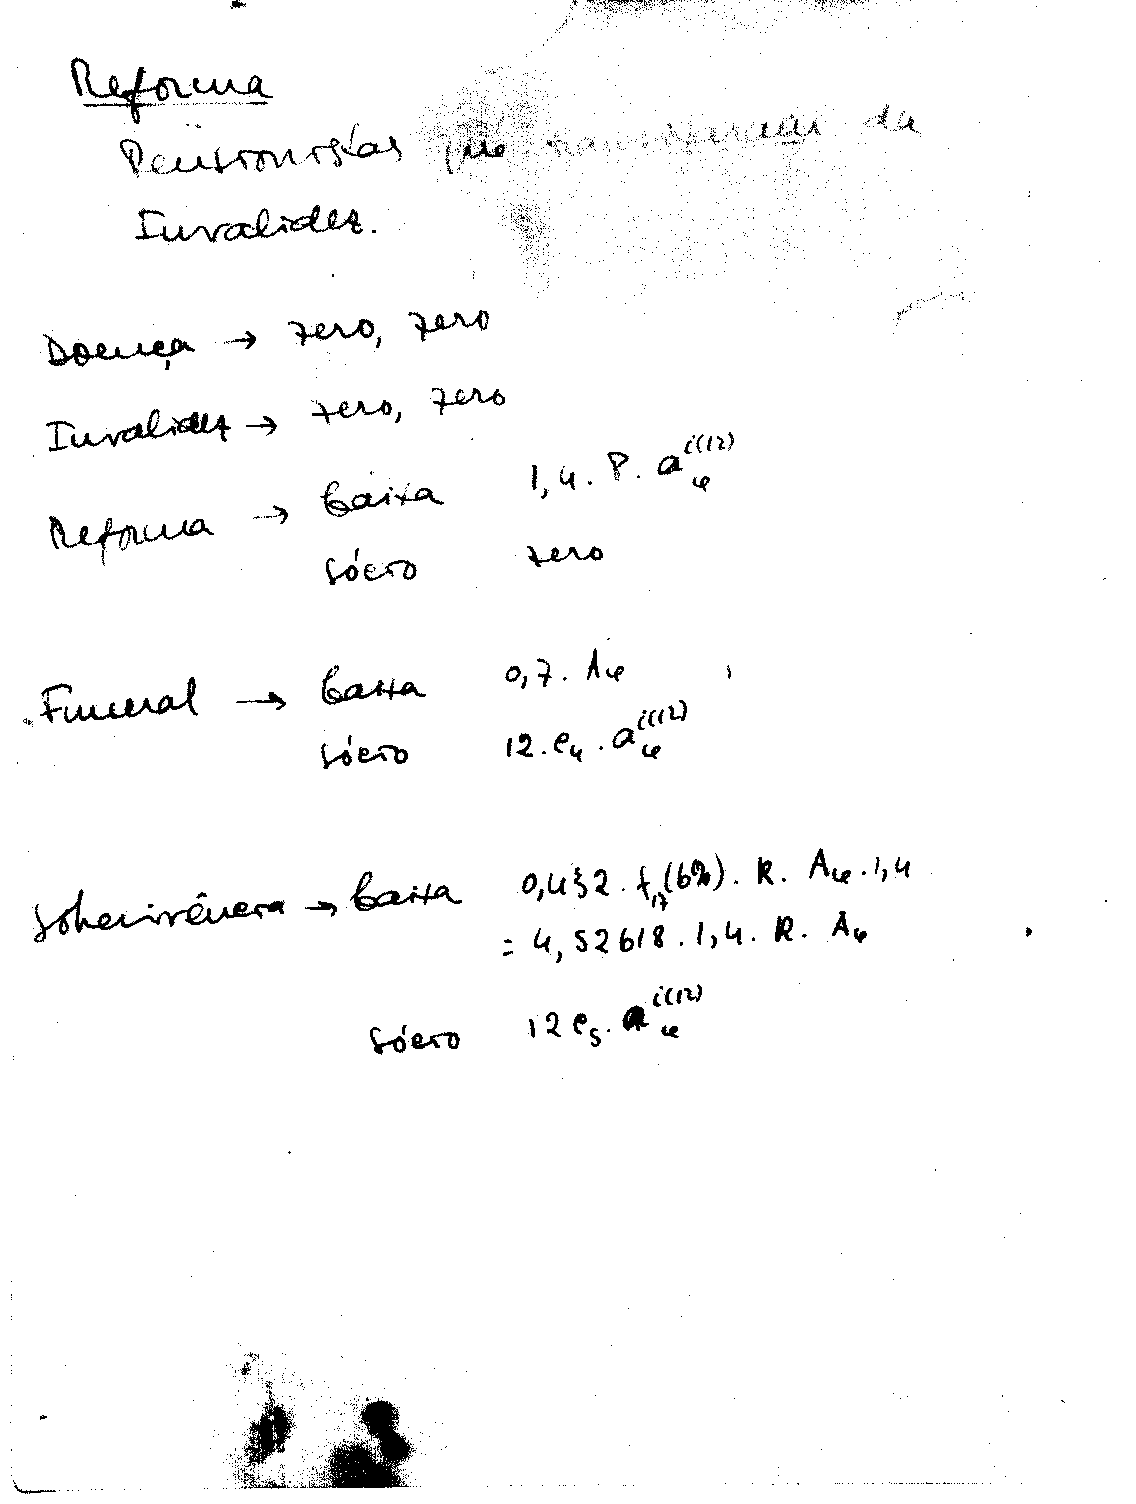 Reforma
Pensionistas que transitaram da
Invalidez.
Doença → zero, zero
Invalidez → zero, zero
Reforma → Caixa 1,4. P. a_φ^{i(12)}
sócio zero
Funeral → Caixa 0,7. A_φ
sócio 12. e_4. a_φ^{i(12)}
Sobrevivência → Caixa 0,432. f_17(6%). R. A_φ. 1,4
= 4,52618. 1,4. R. A_φ
sócio 12 e_5. a_φ^{i(12)}